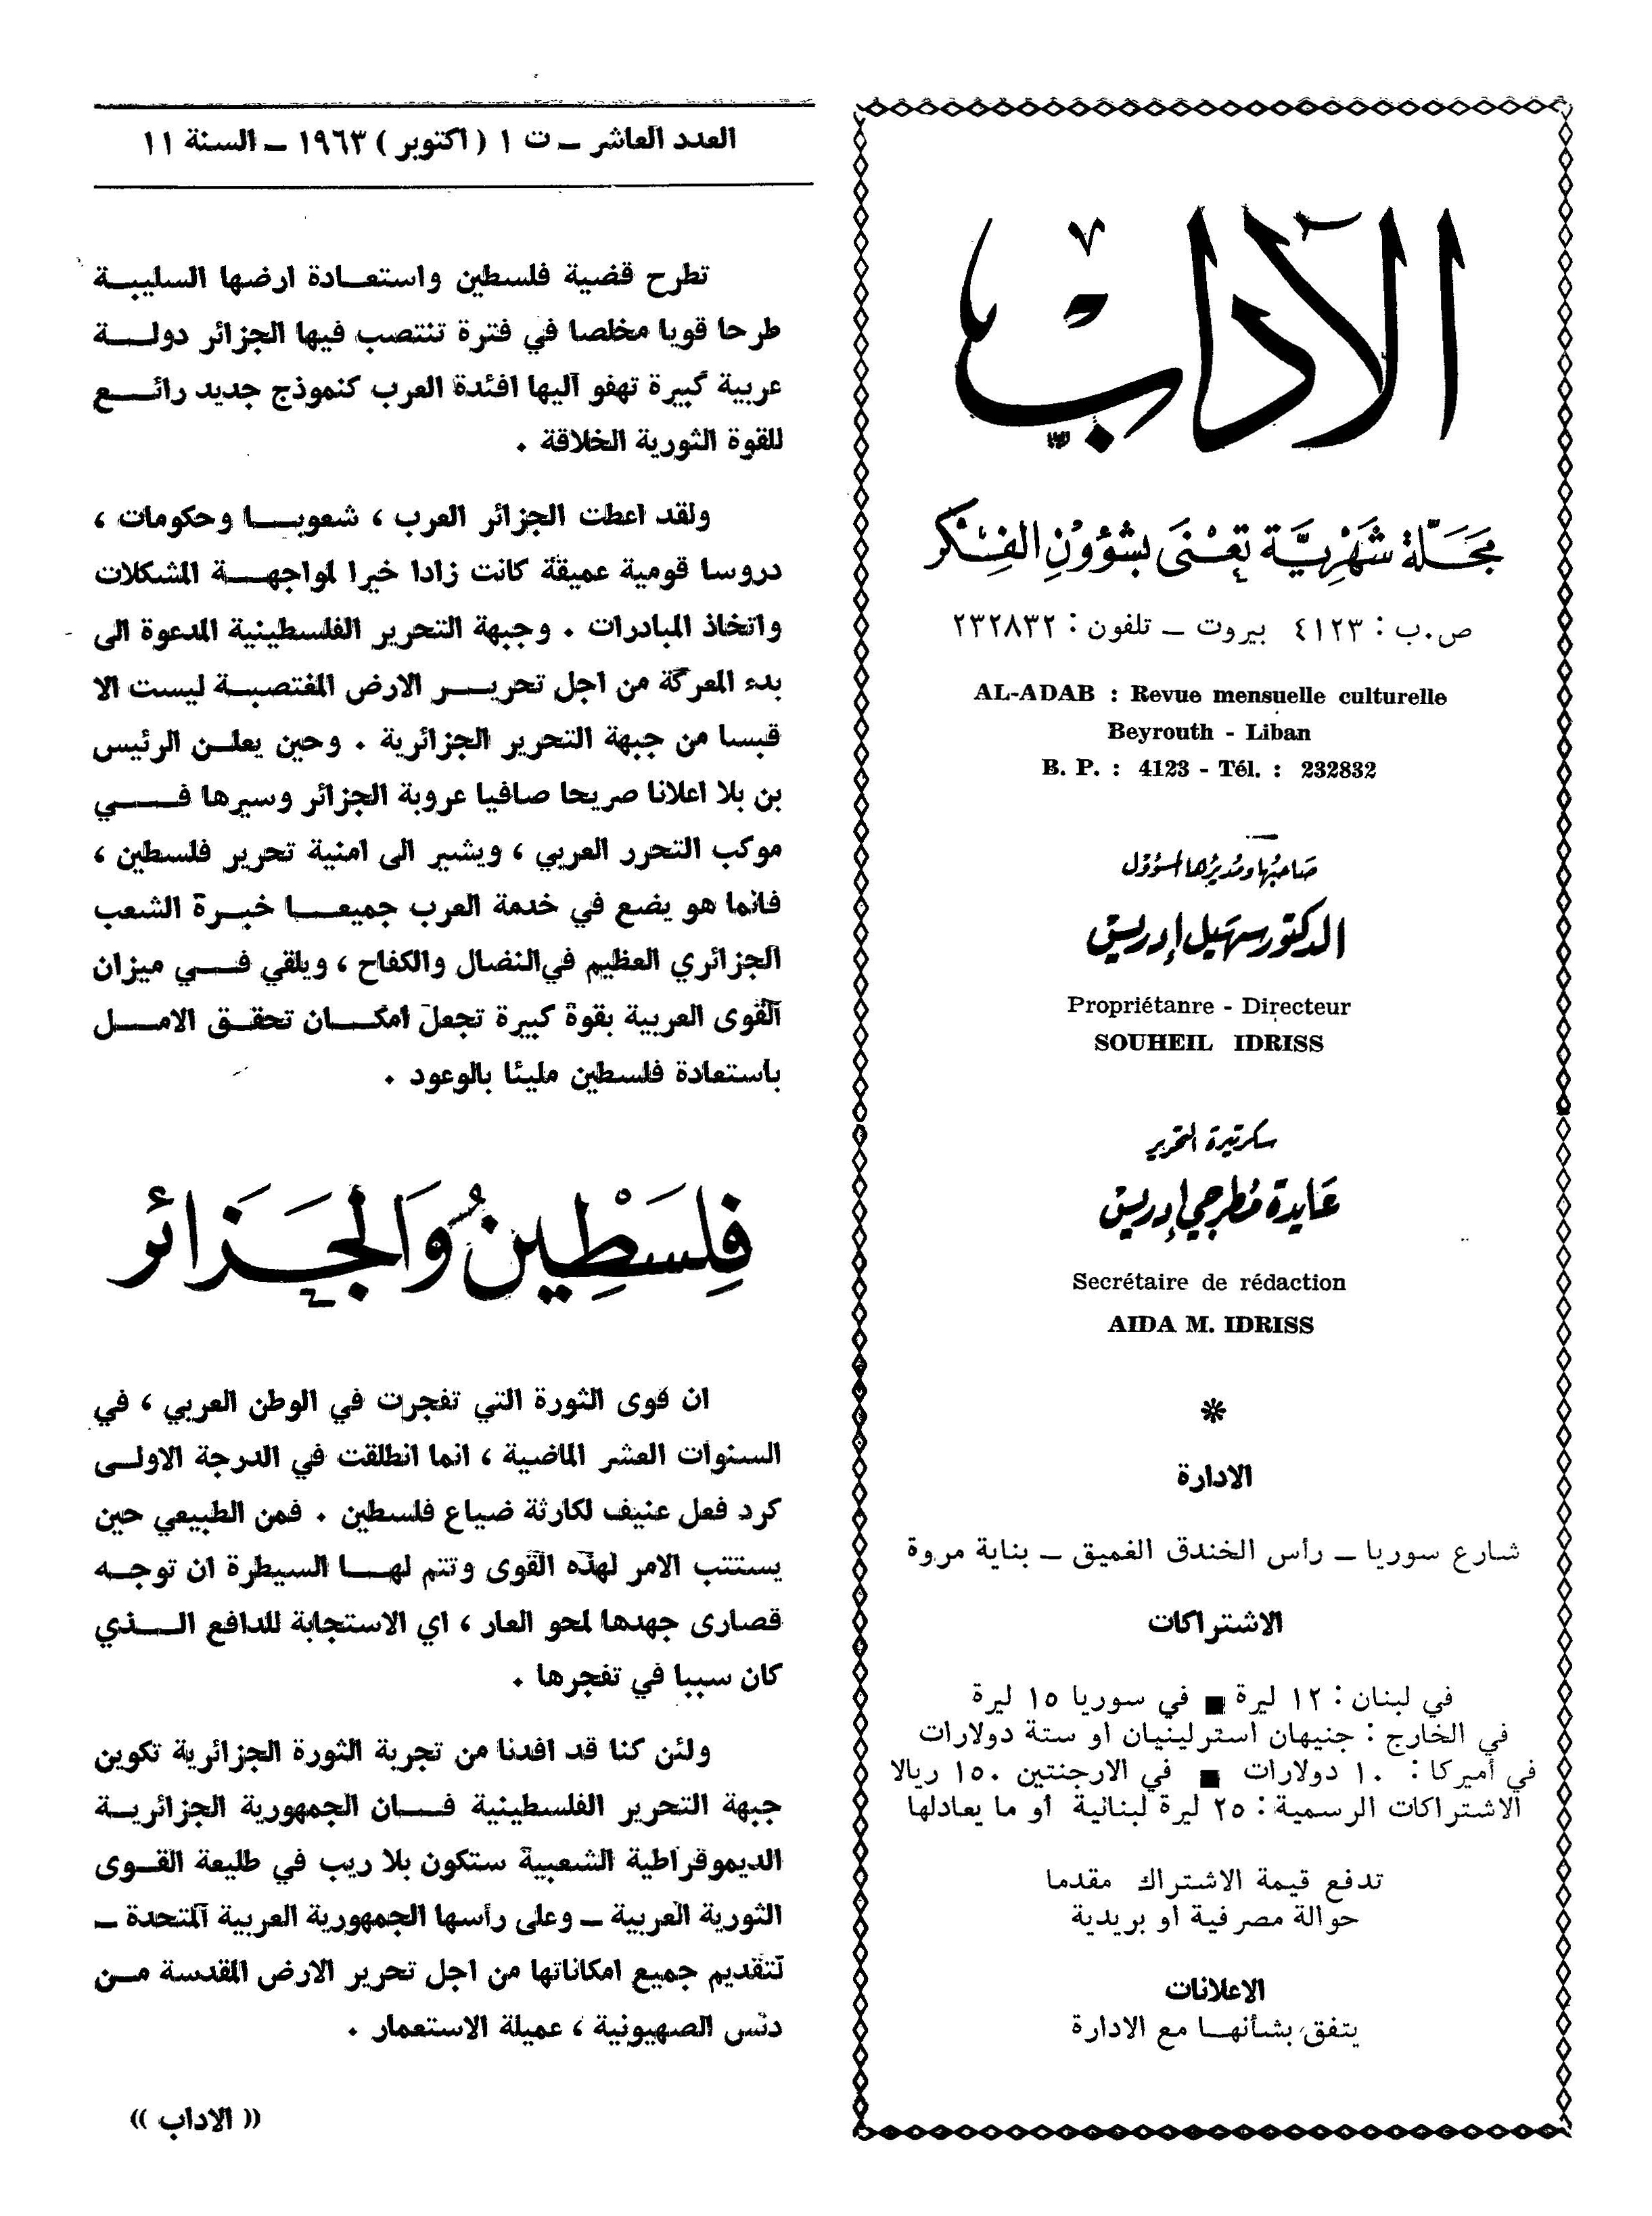 الآداب
مجلّة شهريّة تعنى بشؤون الفكر
ص.ب : ٤١٢٣ بيروت ـ تلفون : ٢٣٢٨٣٢
AL-ADAB : Revue mensuelle culturelle
Beyrouth - Liban
B. P. : 4123 - Tél. : 232832
صاحبها ومديرها المسؤول
الدكتور سهيل إدريس
Propriétanre - Directeur
SOUHEIL IDRISS
سكرتيرة التحرير
عايدة مطرجي إدريس
Secrétaire de rédaction
AIDA M. IDRISS
*
الادارة
شارع سوريا ـ رأس الخندق الغميق ـ بناية مروة
الاشتراكات
في لبنان : ١٢ ليرة ■ في سوريا ١٥ ليرة
في الخارج : جنيهان استرلينيان او ستة دولارات
في أميركا : ١٠ دولارات ■ في الارجنتين ١٥٠ ريالا
الاشتراكات الرسمية : ٢٥ ليرة لبنانية او ما يعادلها
تدفع قيمة الاشتراك مقدما
حوالة مصرفية او بريدية
الاعلانات
يتفق بشأنهـا مع الادارة
العدد العاشر ـ ت ١ ( اكتوبر ) ١٩٦٣ ـ السنة ١١
تطرح قضية فلسطين واستعـادة ارضها السليبـة
طرحا قويا مخلصا في فترة تنتصب فيها الجزائر دولـة
عربية كبيرة تهفو اليها افئدة العرب كنموذج جديد رائـع
للقوة الثورية الخلاقة .
ولقد اعطت الجزائر العرب ، شعوبـا وحكومات ،
دروسا قومية عميقة كانت زادا خيرا لمواجهـة المشكلات
واتخاذ المبادرات . وجبهة التحرير الفلسطينية المدعوة الى
بدء المعركة من اجل تحريـر الارض المغتصبـة ليست الا
قبسا من جبهة التحرير الجزائرية . وحين يعلـن الرئيس
بن بلا اعلانا صريحا صافيا عروبة الجزائر وسيرها فـي
موكب التحرر العربي ، ويشير الى امنية تحرير فلسطين ،
فانما هو يضع في خدمة العرب جميعـا خبـرة الشعب
الجزائري العظيم في النضال والكفاح ، ويلقي فـي ميزان
القوى العربية بقوة كبيرة تجعل امكـان تحقـق الامـل
باستعادة فلسطين مليئا بالوعود .
فلسطين والجزائر
ان قوى الثورة التي تفجرت في الوطن العربي ، في
السنوات العشر الماضية ، انما انطلقت في الدرجة الاولـى
كرد فعل عنيف لكارثة ضياع فلسطين . فمن الطبيعي حين
يستتب الامر لهذه القوى وتتم لهـا السيطرة ان توجـه
قصارى جهدها لمحو العار ، اي الاستجابة للدافع الـذي
كان سببا في تفجرها .
ولئن كنا قد افدنا من تجربة الثورة الجزائرية تكوين
جبهة التحرير الفلسطينية فـان الجمهورية الجزائريـة
الديموقراطية الشعبية ستكون بلا ريب في طليعة القـوى
الثورية العربية ـ وعلى رأسها الجمهورية العربية المتحدة ـ
لتقديم جميع امكاناتها من اجل تحرير الارض المقدسة مـن
دنس الصهيونية ، عميلة الاستعمار .
(( الاداب ))